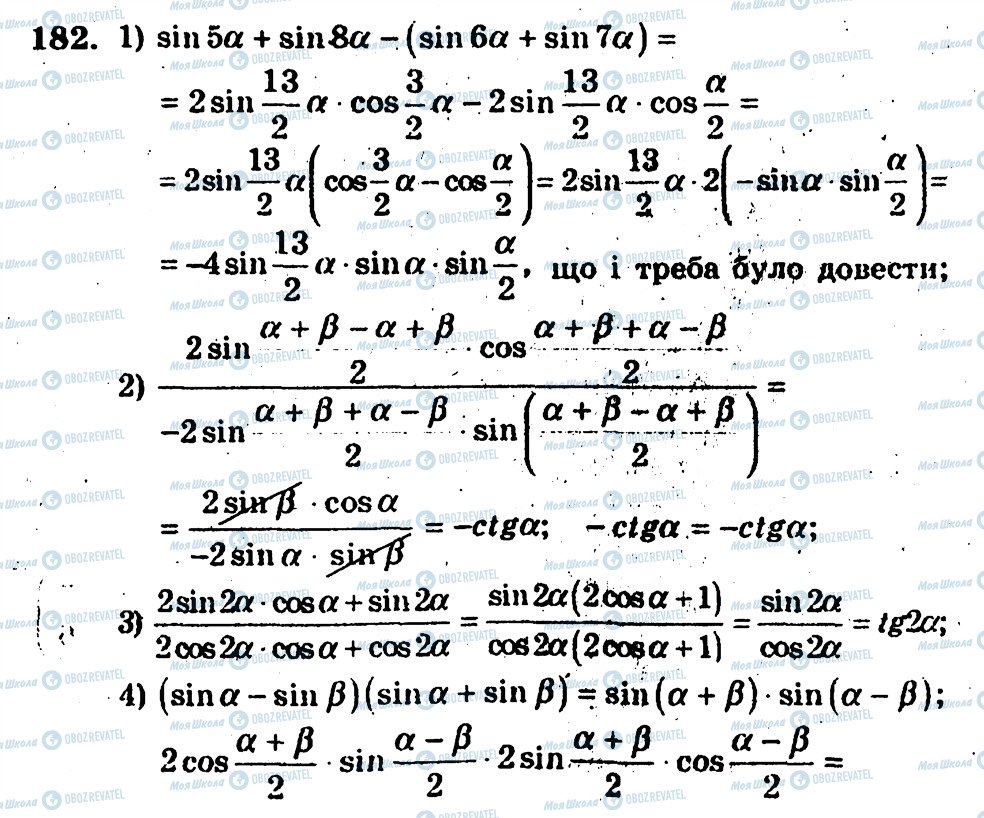 182. 1) sin 5α + sin 8α − (sin 6α + sin 7α) =
= 2 sin 13/2 α · cos 3/2 α − 2 sin 13/2 α · cos α/2 =
= 2 sin 13/2 α (cos 3/2 α − cos α/2) = 2 sin 13/2 α · 2(−sin α · sin α/2) =
= −4 sin 13/2 α · sin α · sin α/2, що і треба було довести;
2) (2 sin (α + β − α + β)/2 · cos (α + β + α − β)/2) / (−2 sin (α + β + α − β)/2 · sin((α + β − α + β)/2)) =
= (2 sin β · cos α) / (−2 sin α · sin β) = −ctgα; −ctgα = −ctgα;
3) (2 sin 2α · cos α + sin 2α) / (2 cos 2α · cos α + cos 2α) = (sin 2α(2 cos α + 1)) / (cos 2α(2 cos α + 1)) = sin 2α / cos 2α = tg2α;
4) (sin α − sin β)(sin α + sin β) = sin(α + β) · sin(α − β);
2 cos (α + β)/2 · sin (α − β)/2 · 2 sin (α + β)/2 · cos (α − β)/2 =